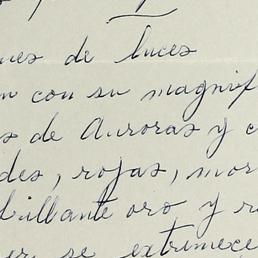 nes de luces
n con su magnif
s de Auroras y c
des, rojas, mor
brillante oro y r
er se extremece